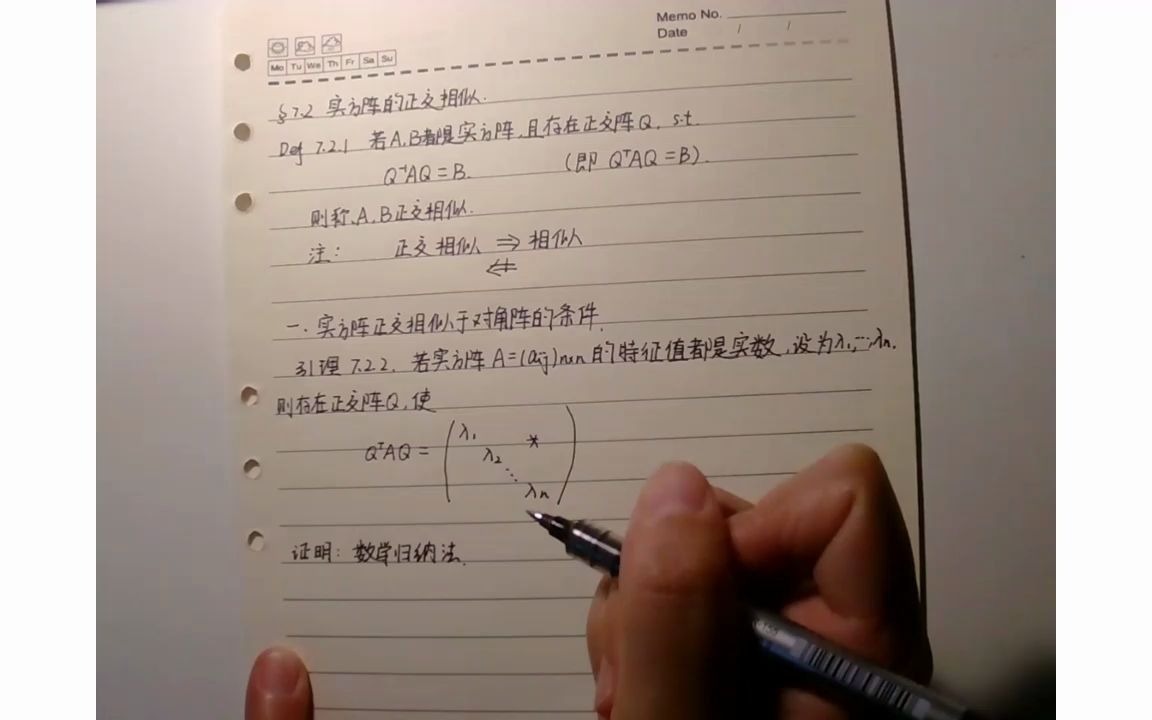 Memo No.
Date / /
Mo Tu We Th Fr Sa Su
§7.2 实方阵的正交相似.
Def 7.2.1 若A,B都是实方阵,且存在正交阵Q, s.t.
Q⁻¹AQ=B. (即 QᵀAQ=B).
则称A,B正交相似.
注: 正交相似 ⇒ 相似
⇍
一.实方阵正交相似于对角阵的条件.
引理 7.2.2. 若实方阵 A=(aij)n×n 的特征值都是实数,设为λ₁,…,λn.
则存在正交阵Q,使
QᵀAQ = ( λ₁ *
λ₂
⋱
λn )
证明: 数学归纳法.